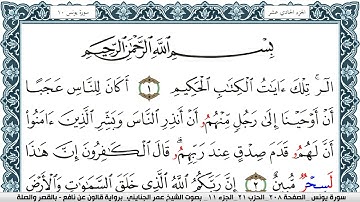 الجزء الحادي عشر
سورة يونس ١٠
بِسْمِ اللَّهِ الرَّحْمَٰنِ الرَّحِيمِ
أَلَٓرَۖ تِلْكَ ءَايَٰتُ اُ۬لْكِتَٰبِ اِ۬لْحَكِيمِ ١ أَكَانَ لِلنَّاسِ عَجَبًا
أَنْ أَوْحَيْنَا إِلَىٰ رَجُلٍ مِّنْهُمُۥ أَنْ أَنذِرِ اِ۬لنَّاسَ وَبَشِّرِ اِ۬لذِينَ ءَامَنُوا
أَنَّ لَهُمُۥ قَدَمَ صِدْقٍ عِندَ رَبِّهِمُۥۖ قَالَ اَ۬لْكَٰفِرُونَ إِنَّ هَٰذَا
لَسِحْرٌ مُّبِينٌ ٢ إِنَّ رَبَّكُمُ اُ۬للَّهُ اُ۬لذِي خَلَقَ اَ۬لسَّمَٰوَٰتِ وَالْأَرْضَ
سورة يونس . الصفحة ٢٠٨ . الحزب ٢١ . الجزء ١١ . بصوت الشيخ عمر الجنايني . برواية قالون عن نافع - بالقصر والصلة